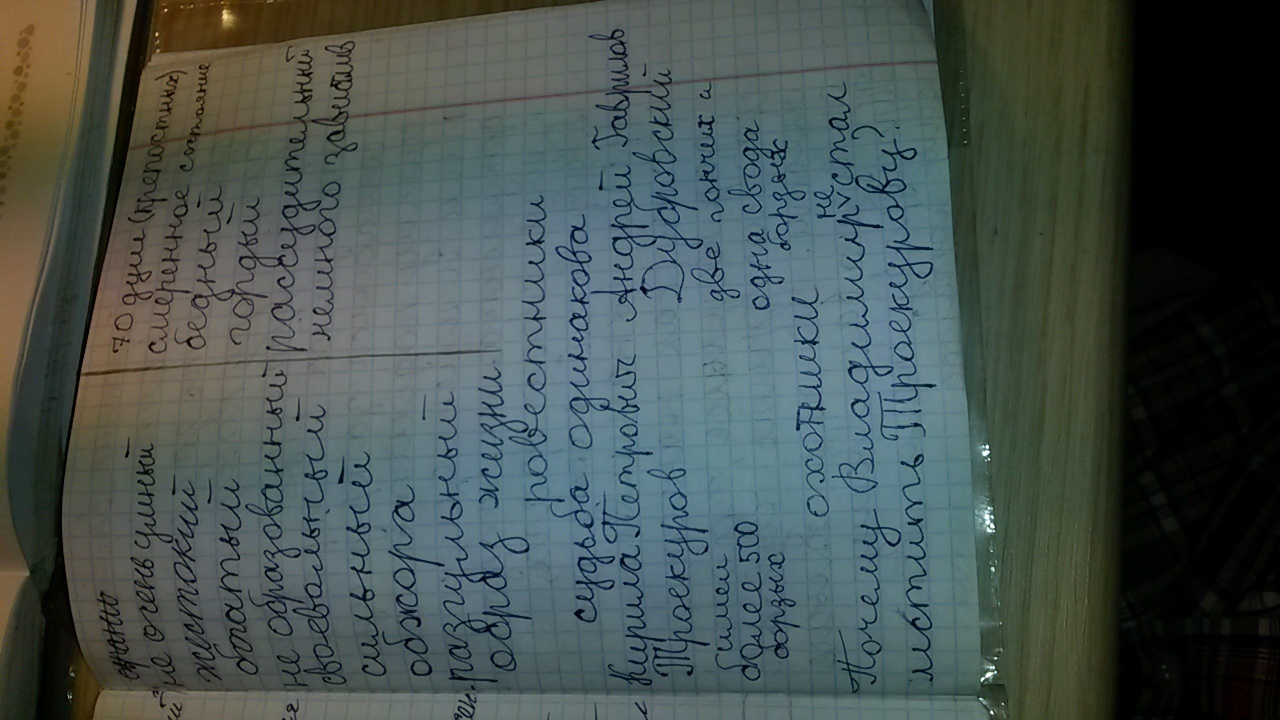 70 душ (крепостных)
не очень умный смеренное состояние
жестокий бедный
богатый гордый
не образованный рассудительный
своевольный немного завистлив
сильный
обжора
разгульный
образ жизни
ровестники
судьба одинакова
Кирила Петрович Андрей Гаврилов
Троекуров Дубровский
имел две гончих и
более 500 одна свода
борзых борзых
охотники
Почему Владимир не стал
мстить Троекурову?